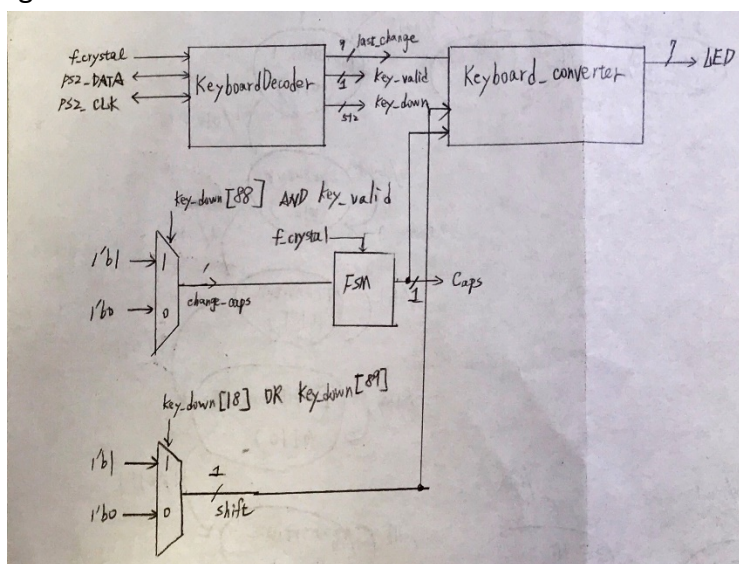 f_crystal
PS2_DATA
PS2_CLK
KeyboardDecoder
9 last_change
1 key_valid
512 key_down
Keyboard_converter
7 LED
key_down[88] AND key_valid
f_crystal
1'b1
1'b0
1
0
change_caps
FSM
1 Caps
key_down[18] OR key_down[89]
1'b1
1'b0
1
0
1
shift